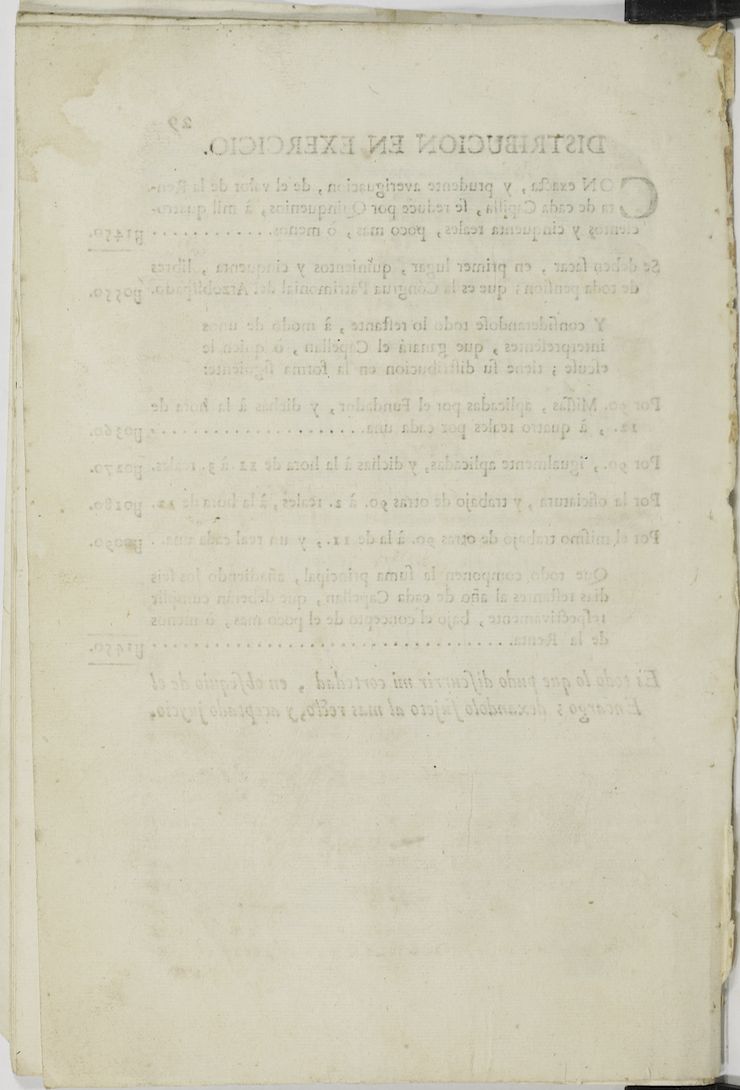 29
DISTRIBUCION EN EXERCICIO.
CON exacta, y prudente averiguacion, de el valor de la Ren-
ta de cada Capilla, se reduce por Quinquenios, à mil quatro-
cientos y cinquenta reales, poco mas, ò menos............ y1450.
Se deben sacar, en primer lugar, quinientos y cinquenta, libres
de toda pension; que es la Congrua Patrimonial del Arzobispado. y0550.
Y considerandose todo lo restante, à modo de unos
interpresentes, que ganará el Capellan, ò quien le
escuse; tiene su distribucion en la forma siguiente:
Por 90. Missas, aplicadas por el Fundador, y dichas à la hora de
12., à quatro reales por cada una..................... y0360.
Por 90., igualmente aplicadas, y dichas à la hora de 11. à 3. reales. y0270.
Por la oficiatura, y trabajo de otras 90. à 2. reales, à la hora de 12. y0180.
Por el mismo trabajo de otras 90. à la de 11., y un real cada una.. y0090.
Que todo componen la suma principal, añadiendo los seis
dias restantes al año de cada Capellan, que deberán cumplir
respectivamente, bajo el concepto de el poco mas, ò menos
de la Renta................................... y1450.
Es todo lo que pudo discurrir mi cortedad, en obsequio de el
Encargo; dexandolo sujeto al mas recto, y aceptado juycio.